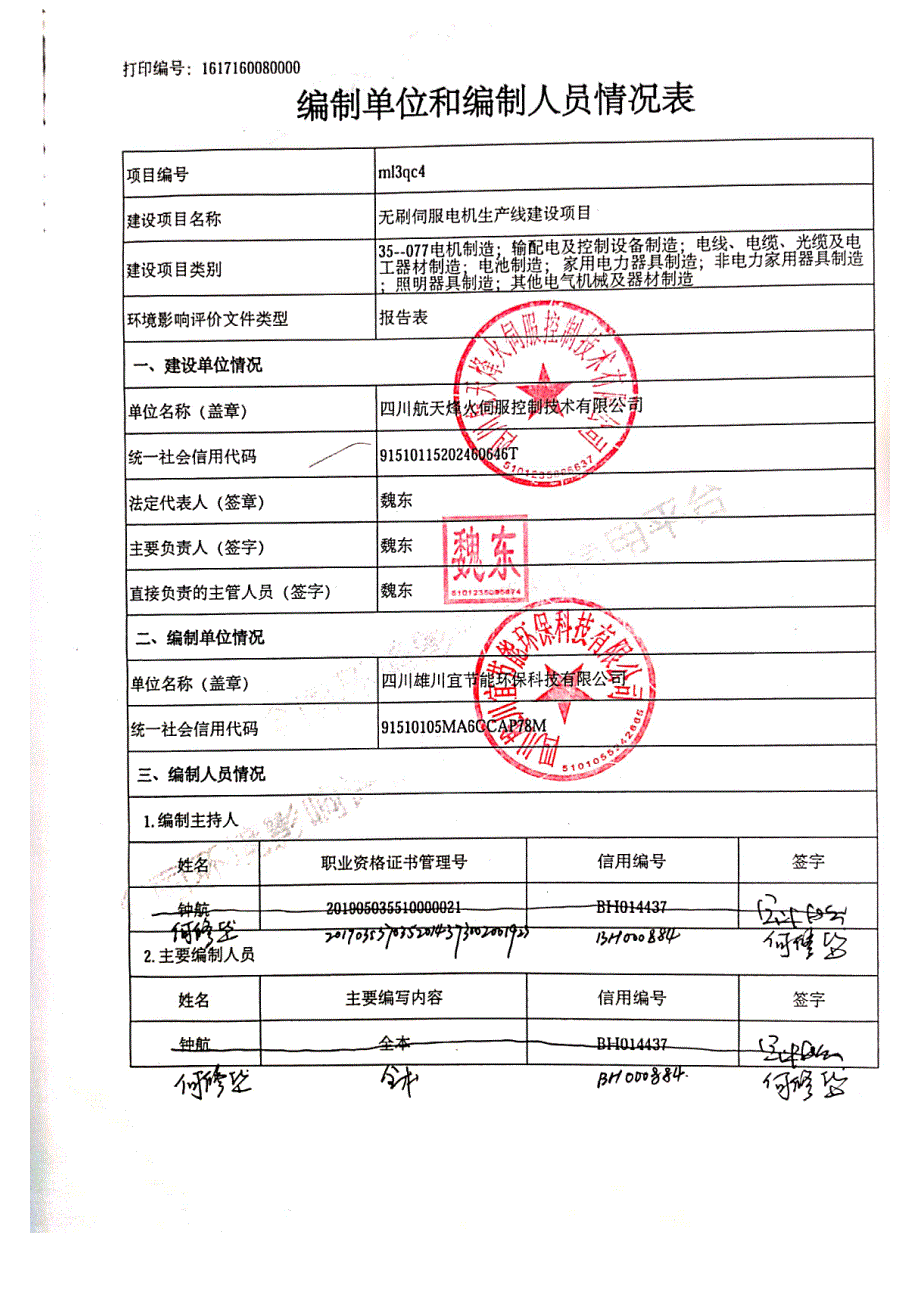 打印编号：1617160080000
编制单位和编制人员情况表
项目编号 ml3qc4
建设项目名称 无刷伺服电机生产线建设项目
建设项目类别 35--077电机制造；输配电及控制设备制造；电线、电缆、光缆及电
工器材制造；电池制造；家用电力器具制造；非电力家用器具制造
；照明器具制造；其他电气机械及器材制造
环境影响评价文件类型 报告表
一、建设单位情况
单位名称（盖章） 四川航天烽火伺服控制技术有限公司
统一社会信用代码 91510115202460646T
法定代表人（签章） 魏东
主要负责人（签字） 魏东
直接负责的主管人员（签字） 魏东
魏东
二、编制单位情况
单位名称（盖章） 四川雄川宜节能环保科技有限公司
统一社会信用代码 91510105MA6CCAP78M
三、编制人员情况
1.编制主持人
姓名 职业资格证书管理号 信用编号 签字
钟航 201905035510000021 BH014437
2017035570352014373002001923 BH000884
2.主要编制人员
姓名 主要编写内容 信用编号 签字
钟航 全本 BH014437
全本 BH000884